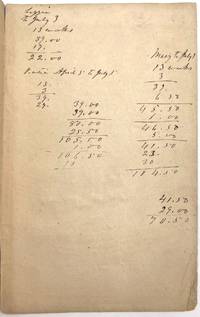 Lizzie
to July 9
13 weeks
39.00
17.
22.00
April 5 to July 5
13.
3
39.
29.
39.00
39.00
25.50
1.00
106.50
Mary to July 9
13 weeks
3
39
6.50
45.50
1.00
46.50
5.00
41.50
23.
104.50
41.50
29.00
70.50